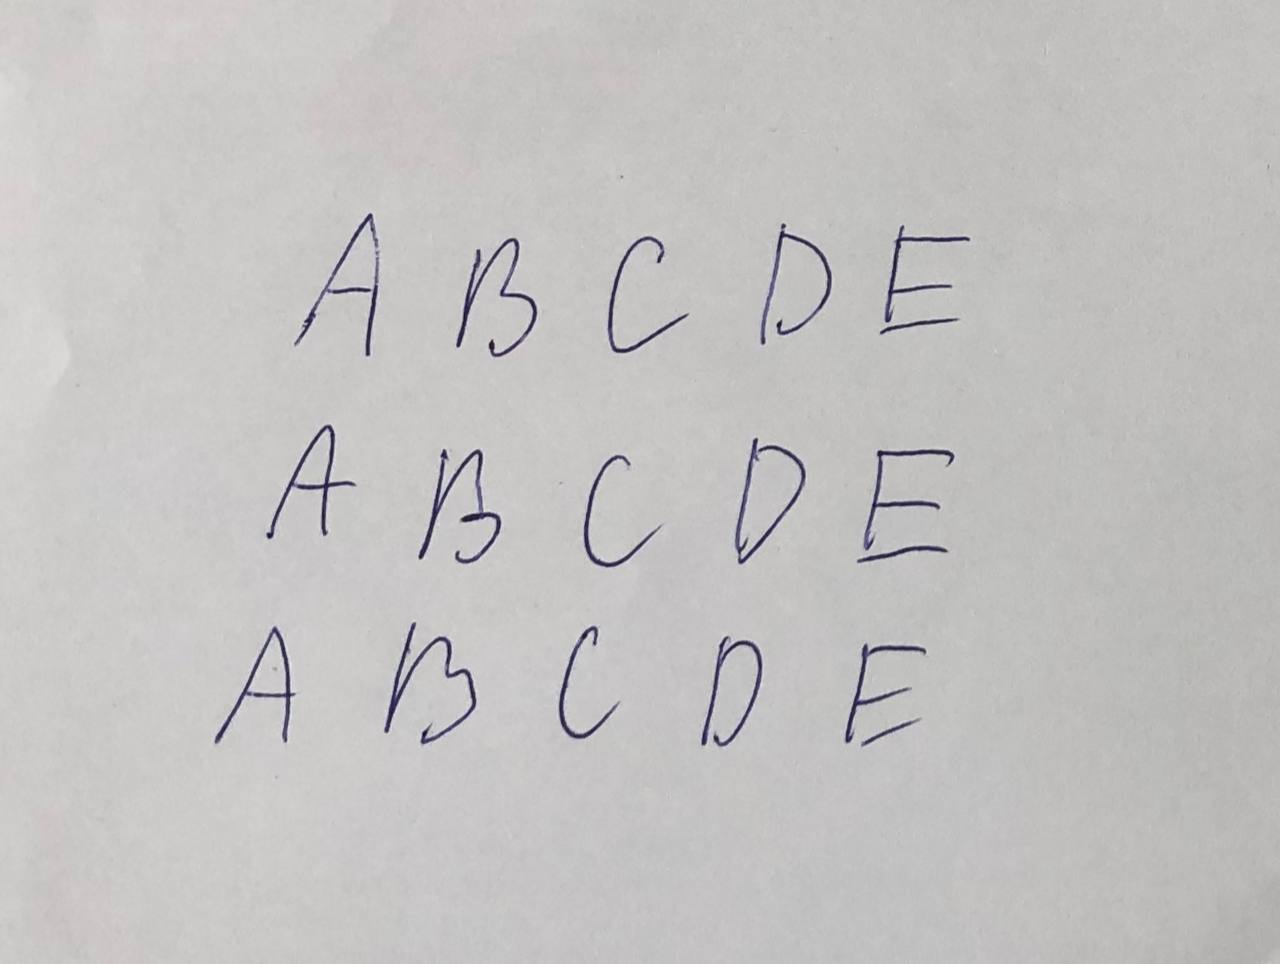 A B C D E
A B C D E
A B C D E